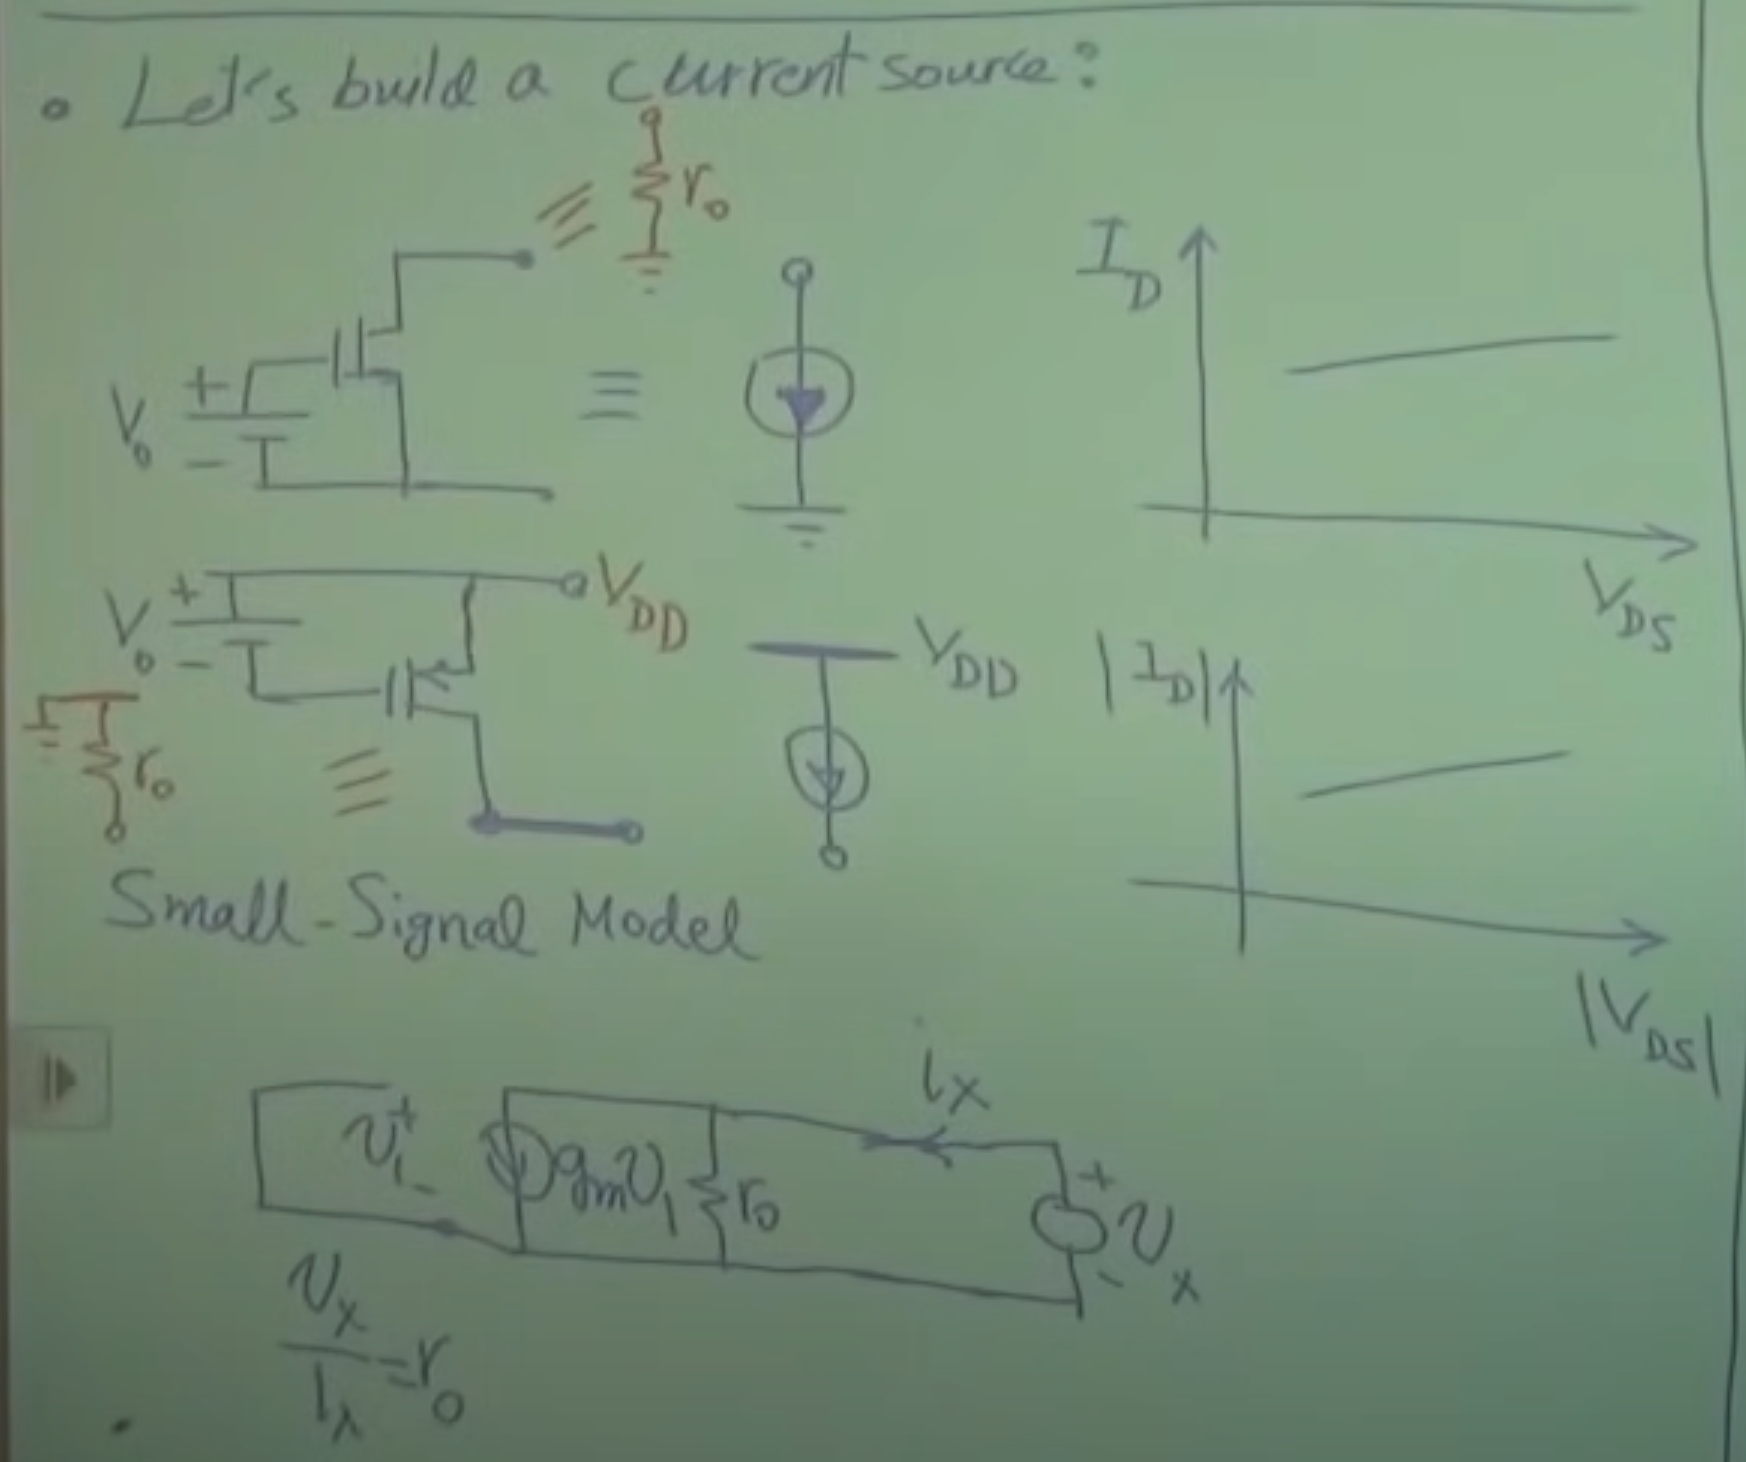 • Let's build a current source:
r₀
I_D
V₀ + -
V_DS
V₀ + -
V_DD
V_DD
|I_D|
r₀
Small-Signal Model
|V_DS|
i_X
v₁ + -
g_m v₁
r₀
+ - v_X
v_X / i_X = r₀